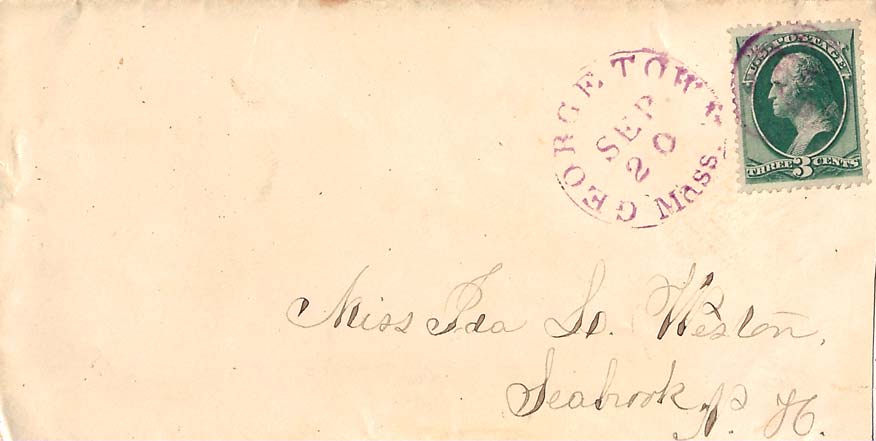 U.S. POSTAGE
THREE 3 CENTS
GEORGETOWN Mass.
SEP
20
Miss Ida So. Weston,
Seabrook N. H.